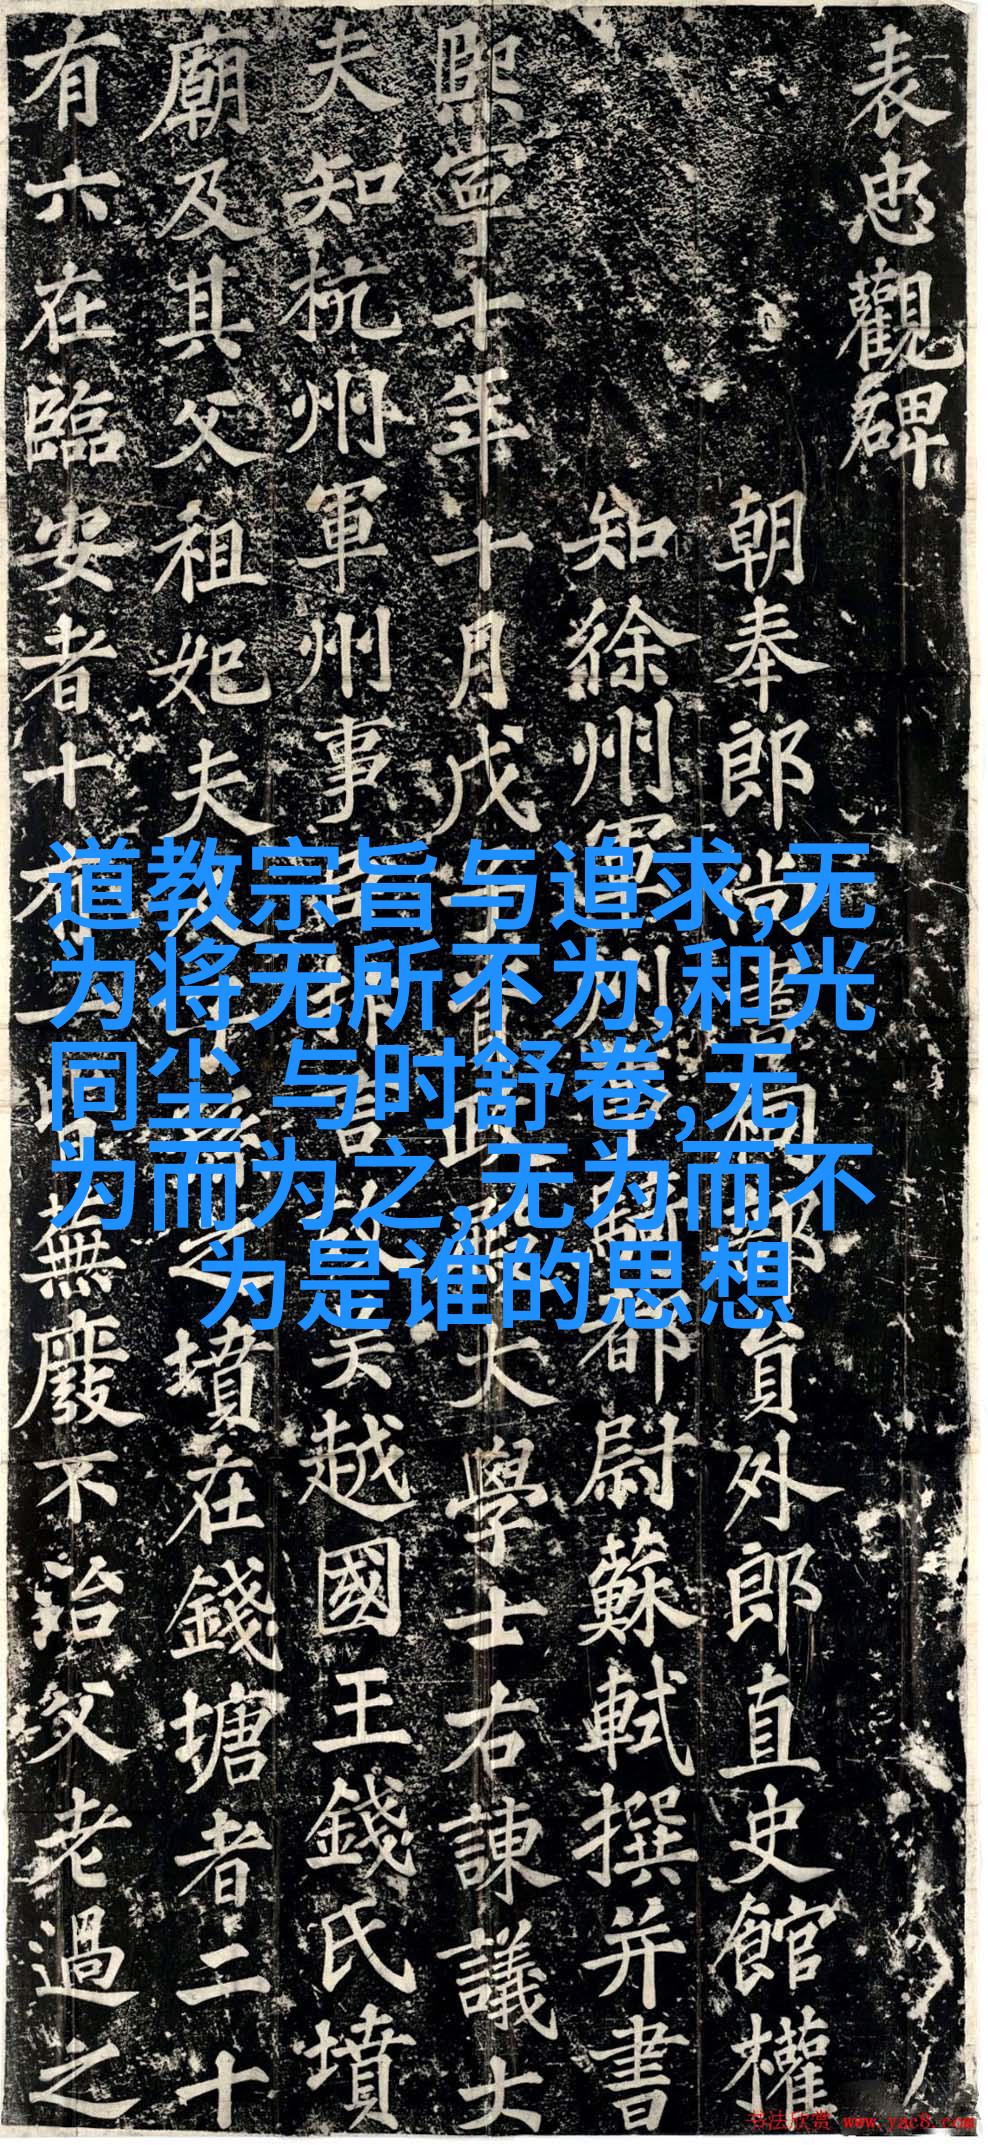 表忠觀碑
朝奉郎尚書祠部員外郎直史館權
知徐州軍州事騎都尉蘇軾撰并書
熙寧十年十月戊子資政殿大學士右諫議大
夫知杭州軍州事臣抃言故吳越國王錢氏墳
廟及其父祖妃夫人子孫之墳在錢塘者二十
有六在臨安者十有一皆蕪廢不治父老過之
道教宗旨与追求,无
为将无所不为,和光
同尘 与时舒卷,无
为而为之,无为而不
为是谁的思想
书法欣赏 www.yac8.com